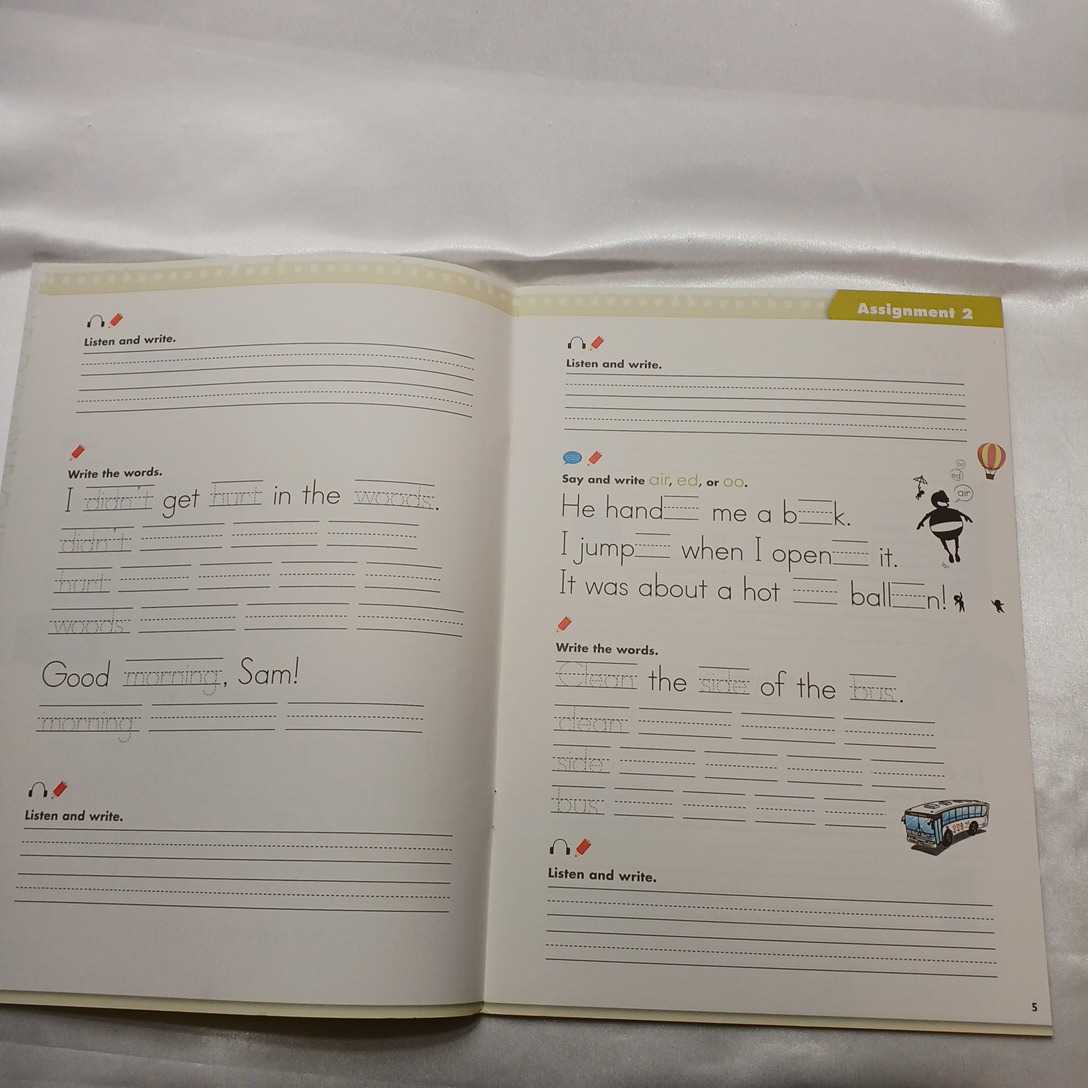 Listen and write.
Write the words.
I didn't get hurt in the woods.
didn't
hurt
woods
Good morning, Sam!
morning
Listen and write.
Assignment 2
Listen and write.
Say and write air, ed, or oo.
oo
ed
air
He hand me a b k.
I jump when I open it.
It was about a hot ball n!
Write the words.
Clean the side of the bus.
clean
side
bus
Listen and write.
5